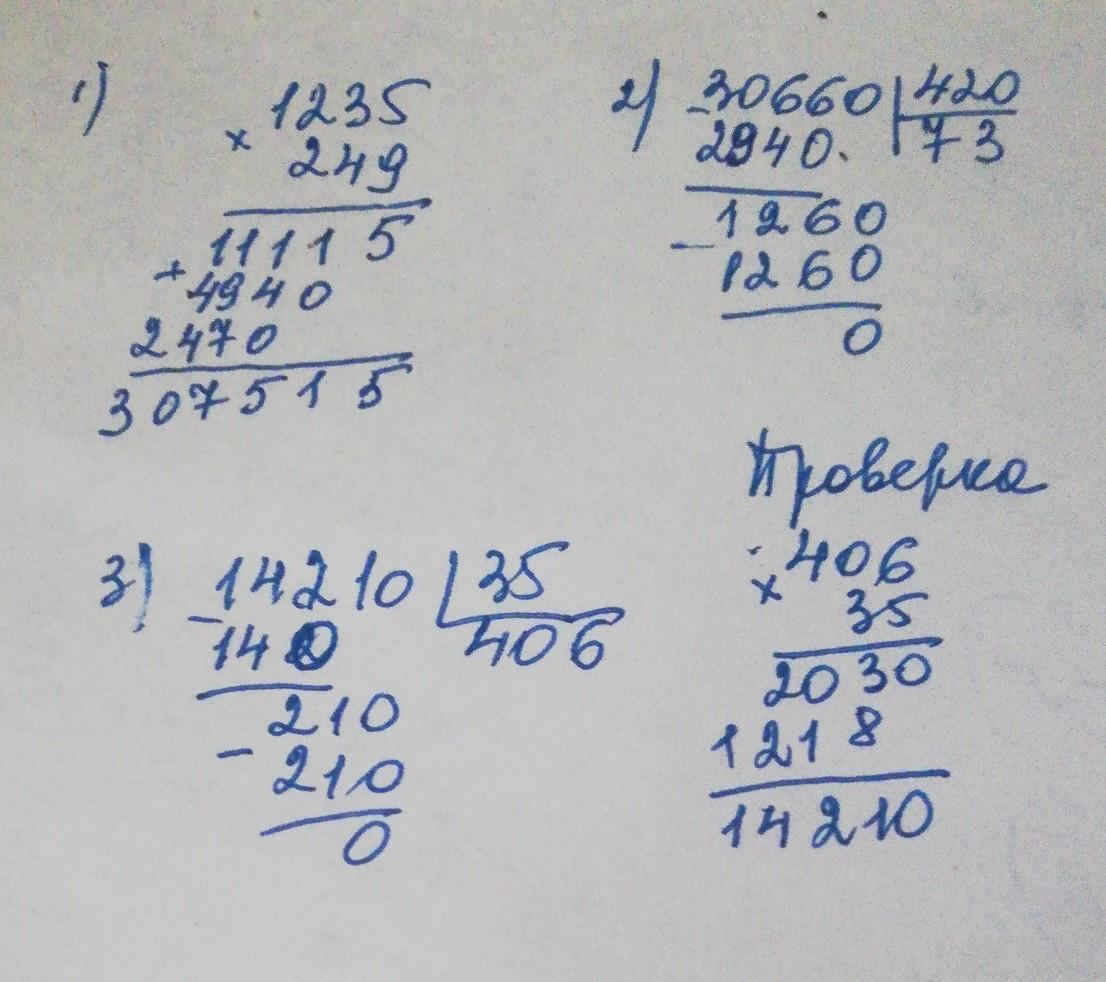 1)
× 1235
249
+ 11115
4940
2470
307515
2) - 30660 | 420
2940. 73
- 1260
1260
0
3) - 14210 | 35
140 406
- 210
210
0
Проверка
× 406
35
2030
1218
14210